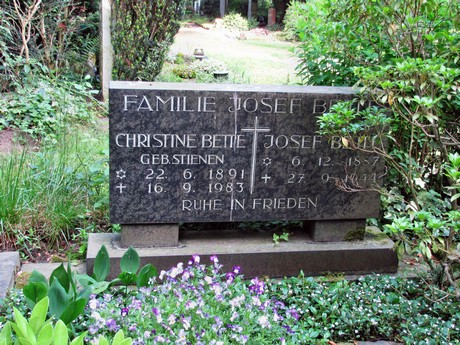 FAMILIE JOSEF BETTE
CHRISTINE BETTE JOSEF BETTE
GEB. STIENEN ✡ 6. 12. 1887
✡ 22. 6. 1891 ✝ 27. 9.
✝ 16. 9. 1983
RUHE IN FRIEDEN